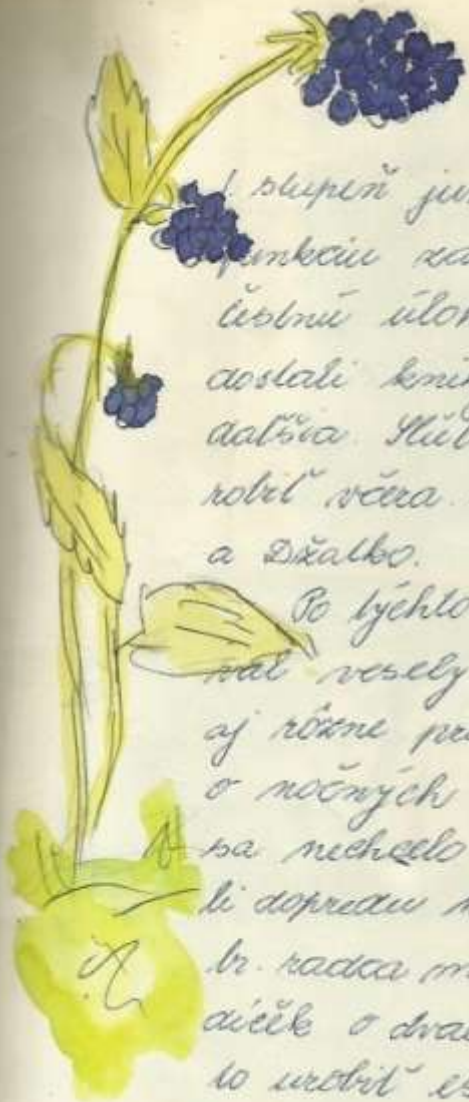 stupeň
funkciu za
čestnú úloh
dostali kni
ďalšia. Slúb
robiť včera.
a Džalko.
Po týchto
val veselý
aj rôzne pr
o nočných
sa nechcelo
li dopredu
br. radca m
dičšk o dva
to urobiť es